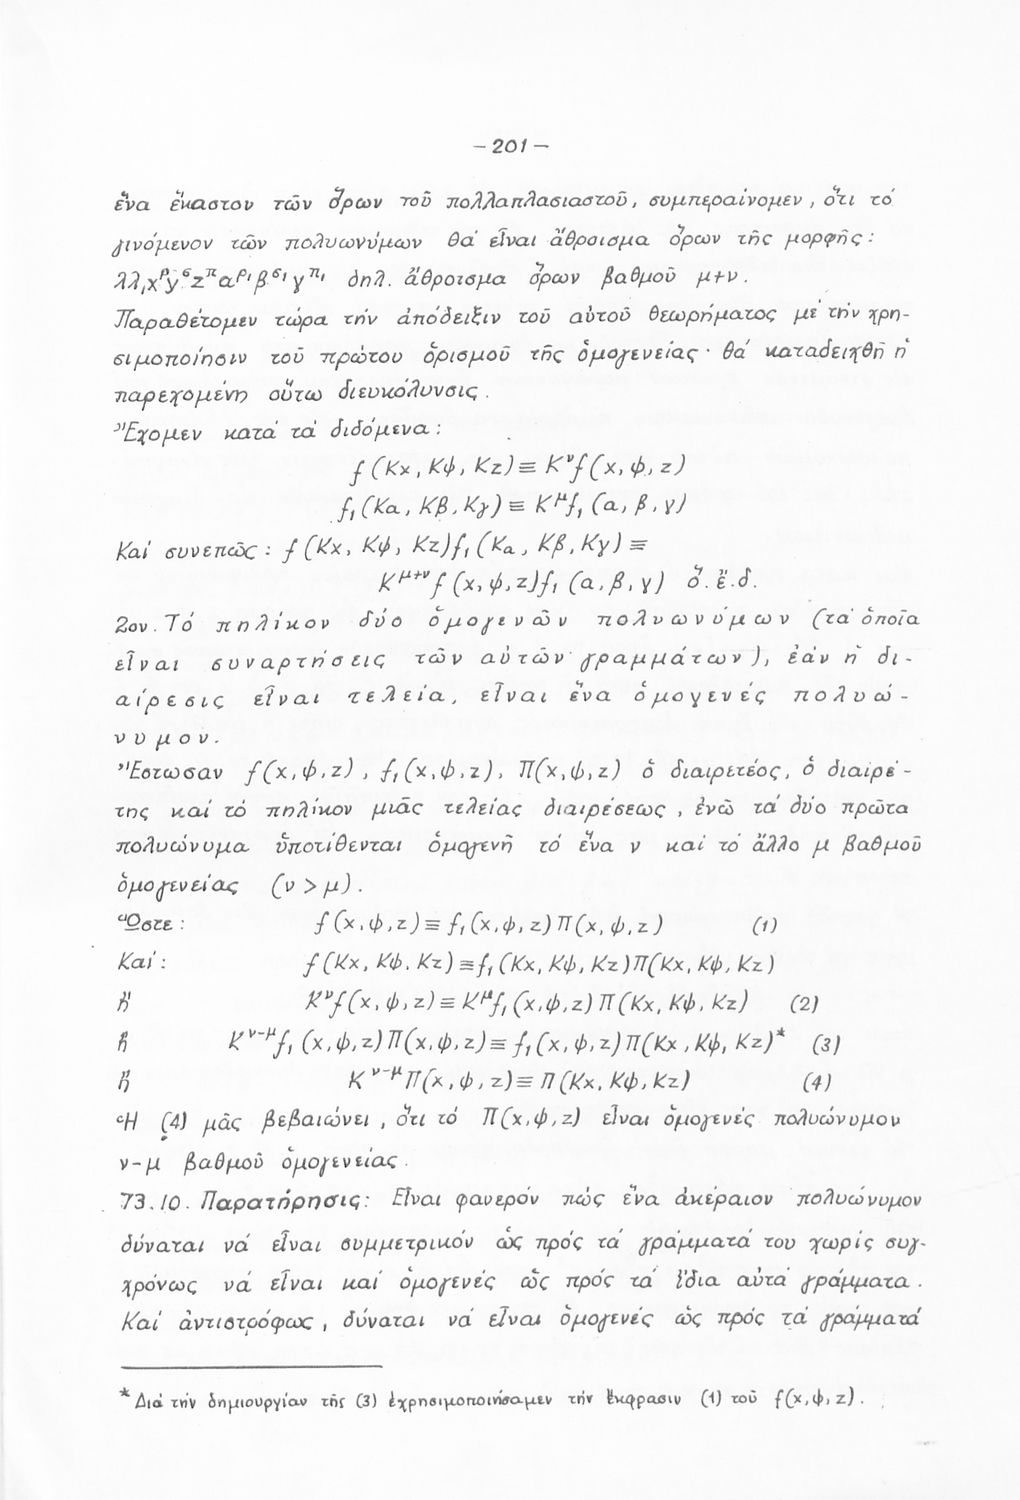 - 201 -
ἕνα ἕκαστον τῶν ὅρων τοῦ πολλαπλασιαστοῦ, συμπεραίνομεν, ὅτι τό
γινόμενον τῶν πολυωνύμων θά εἶναι ἄθροισμα ὅρων τῆς μορφῆς:
λλ₁xᵖyᶜzᵖαᵖ¹βᶜ¹γᵖ¹ δηλ. ἄθροισμα ὅρων βαθμοῦ μ+ν.
Παραθέτομεν τώρα τήν ἀπόδειξιν τοῦ αὐτοῦ θεωρήματος μέ τήν χρη-
σιμοποίησιν τοῦ πρώτου ὁρισμοῦ τῆς ὁμογενείας· θά καταδειχθῆ ἡ
παρεχομένη οὕτω διευκόλυνσις.
Ἔχομεν κατά τά διδόμενα:
f(Kx, Kψ, Kz) ≡ Kᵛf(x, ψ, z)
f₁(Kα, Kβ, Kγ) ≡ Kᵘf₁(α, β, γ)
Καί συνεπῶς: f(Kx, Kψ, Kz)f₁(Kα, Kβ, Kγ) ≡
Kᵘ⁺ᵛf(x, ψ, z)f₁(α, β, γ) ὅ.ἔ.δ.
2ον. Τό πηλίκον δύο ὁμογενῶν πολυωνύμων (τά ὁποῖα
εἶναι συναρτήσεις τῶν αὐτῶν γραμμάτων), ἐάν ἡ δι-
αίρεσις εἶναι τελεία, εἶναι ἕνα ὁμογενές πολυώ-
νυμον.
Ἔστωσαν f(x, ψ, z), f₁(x, ψ, z), Π(x, ψ, z) ὁ διαιρετέος, ὁ διαιρέ-
της καί τό πηλίκον μιᾶς τελείας διαιρέσεως, ἐνῶ τά δύο πρῶτα
πολυώνυμα ὑποτίθενται ὁμογενῆ τό ἕνα ν καί τό ἄλλο μ βαθμοῦ
ὁμογενείας (ν > μ).
Ὥστε: f(x, ψ, z) ≡ f₁(x, ψ, z)Π(x, ψ, z) (1)
Καί: f(Kx, Kψ, Kz) ≡ f₁(Kx, Kψ, Kz)Π(Kx, Kψ, Kz)
ἤ Kᵛf(x, ψ, z) ≡ Kᵘf₁(x, ψ, z)Π(Kx, Kψ, Kz) (2)
ἤ Kᵛ⁻ᵘf₁(x, ψ, z)Π(x, ψ, z) ≡ f₁(x, ψ, z)Π(Kx, Kψ, Kz)* (3)
ἤ Kᵛ⁻ᵘΠ(x, ψ, z) ≡ Π(Kx, Kψ, Kz) (4)
Ἡ (4) μᾶς βεβαιώνει, ὅτι τό Π(x, ψ, z) εἶναι ὁμογενές πολυώνυμον
ν-μ βαθμοῦ ὁμογενείας.
73.10. Παρατήρησις: Εἶναι φανερόν πώς ἕνα ἀκέραιον πολυώνυμον
δύναται νά εἶναι συμμετρικόν ὡς πρός τά γράμματά του χωρίς συγ-
χρόνως νά εἶναι καί ὁμογενές ὡς πρός τά ἴδια αὐτά γράμματα.
Καί ἀντιστρόφως, δύναται νά εἶναι ὁμογενές ὡς πρός τά γράμματά
* Διά τήν δημιουργίαν τῆς (3) ἐχρησιμοποιήσαμεν τήν ἔκφρασιν (1) τοῦ f(x, ψ, z).